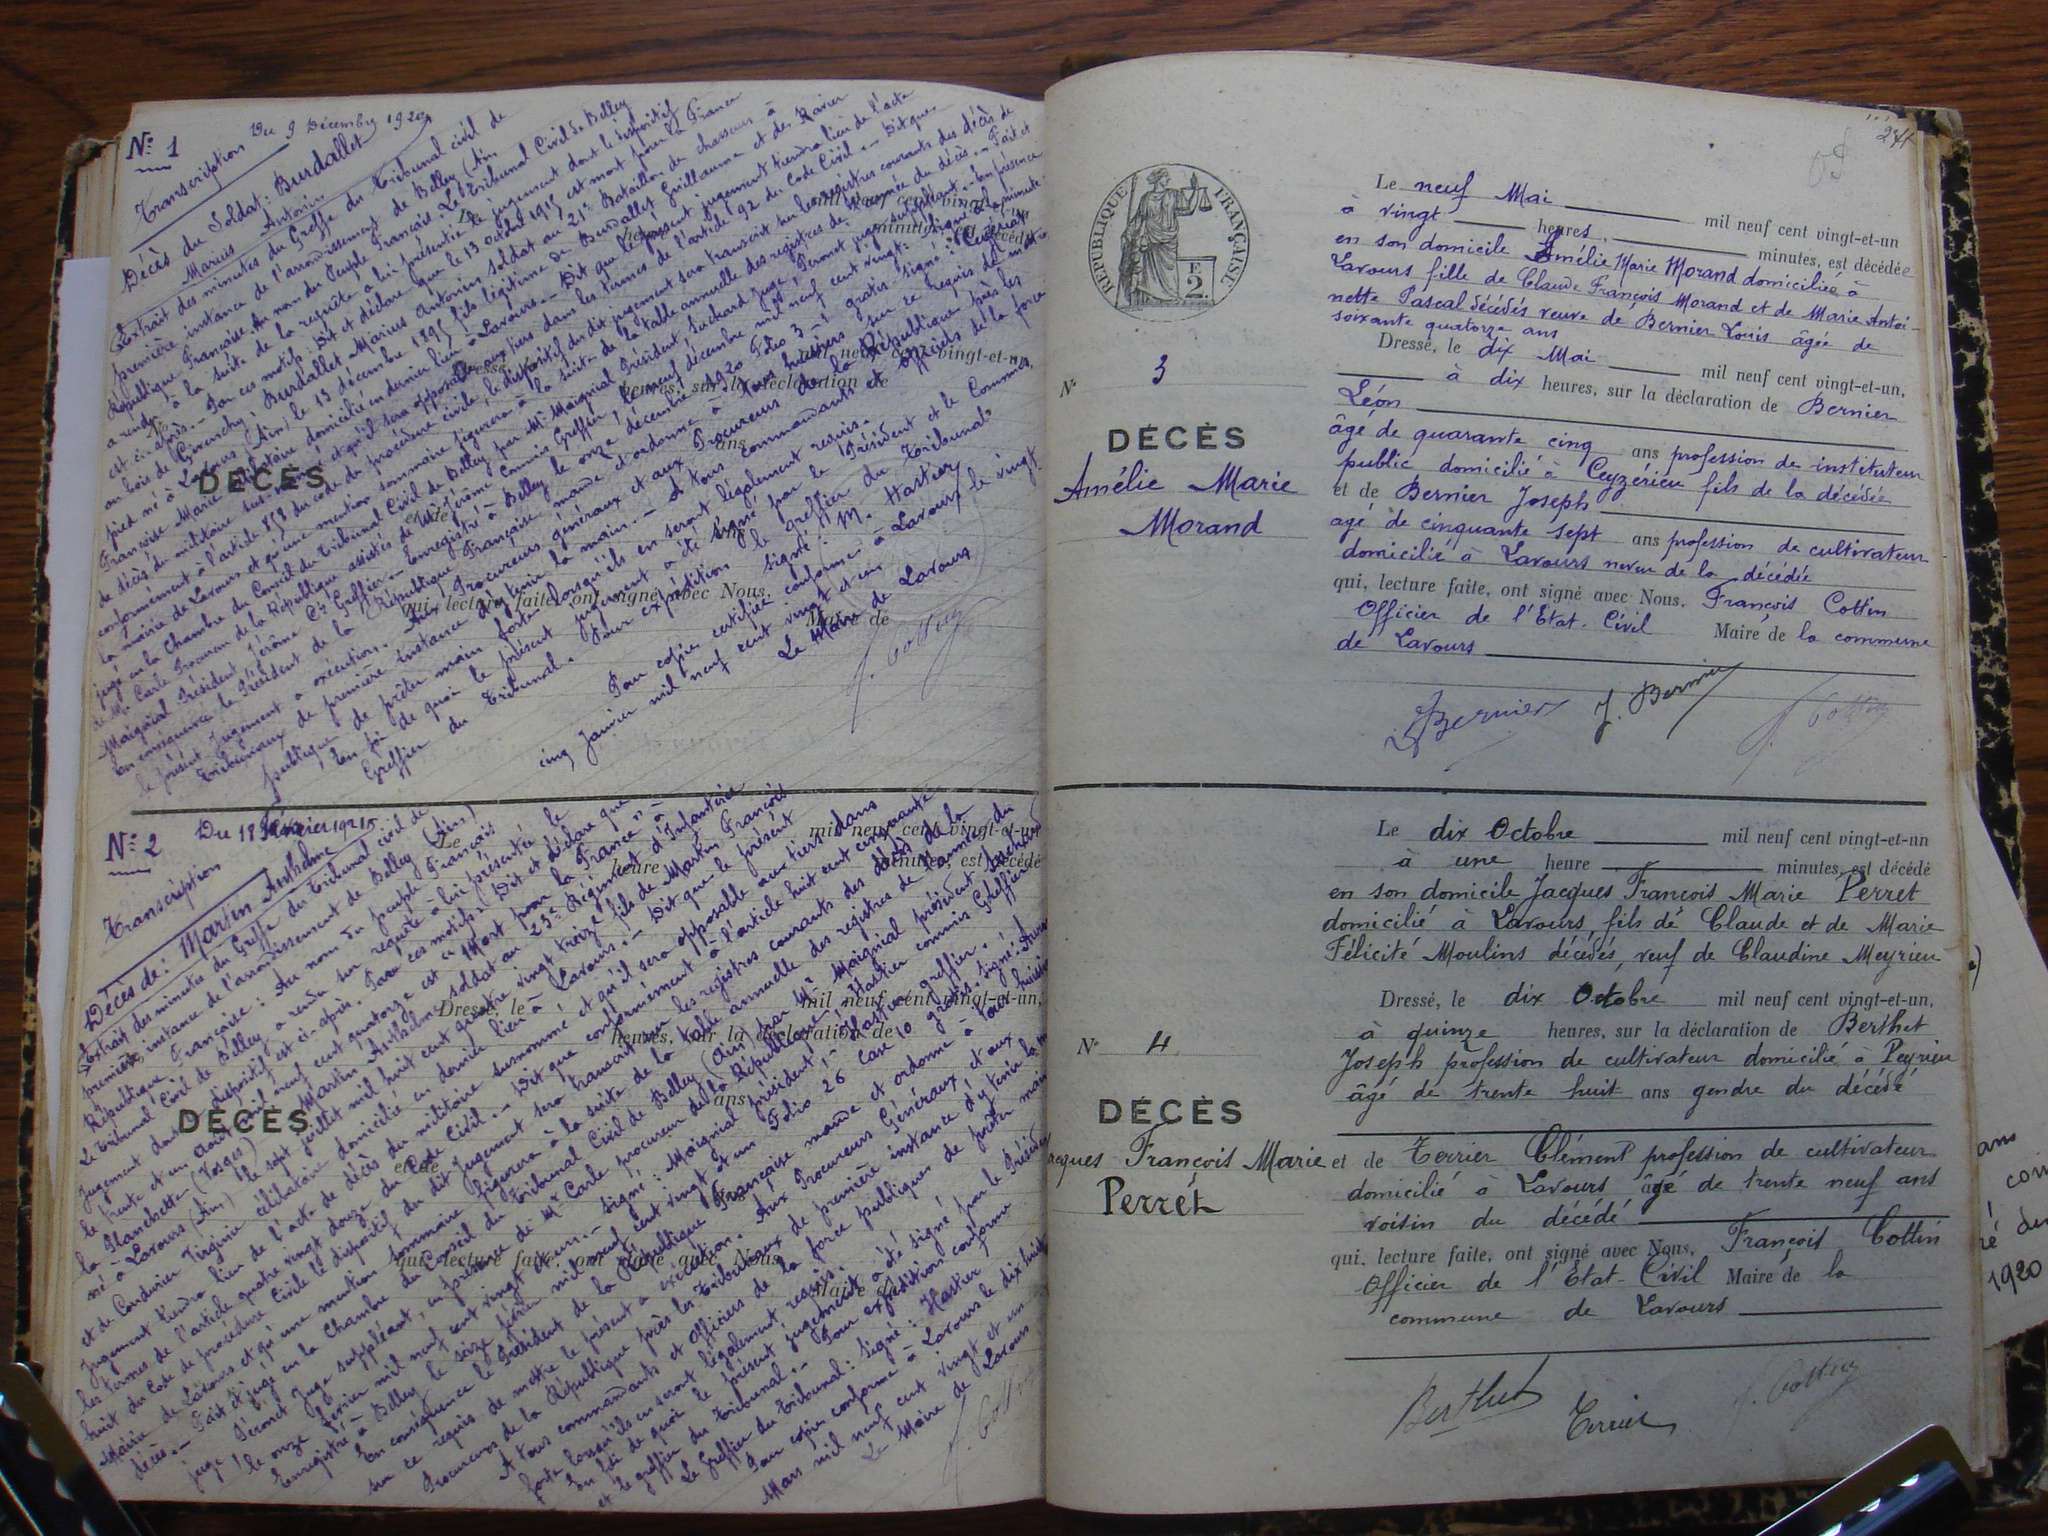 N° 1
Du 9 Décembre 1920
Transcription
Décès du Soldat: Burdallet
Marius Antonin
Extrait des minutes du Greffe du Tribunal civil de
première instance de l'arrondissement de Belley (Ain
République Française Au nom du Peuple Français. Le Tribunal Civil de Belley
a rendu à la suite de la requête à lui présentée le jugement dont le dispositif
est ci-après. - Par ces motifs Dit et déclare que le 13 octobre 1915 est mort pour la France
au bois de Givenchy Burdallet Marius Antonin soldat au 21e Bataillon de chasseurs à
pied né à Lavours (Ain) le 13 décembre 1895 fils légitime de Burdallet Guillaume et de Ravier
Françoise Marie célibataire domicilié en dernier lieu à Lavours. - Dit que le présent jugement tiendra lieu de l'acte
de décès du militaire sus-nommé et qu'il sera opposable aux tiers dans les termes de l'article 92 du Code Civil. - Dit que
conformément à l'article 858 du code de procédure civile, le dispositif du dit jugement sera transcrit sur les registres courants des décès de
la mairie de Lavours et qu'une mention sommaire figurera à la suite de la table annuelle des registres de l'année du décès. - Fait et
jugé en la Chambre du Conseil du Tribunal Civil de Belley par Mr Maignial Président, Suchard juge, Peronet juge suppléant. - En présence
de Mr Carle Procureur de la République assistés de Mr Jérôme Commis Greffier, le neuf décembre mil neuf cent vingt. - Signé à la minute:
Maignial Président, Jérôme Cis Greffier. - Enregistré à Belley le onze décembre 1920 Folio 3 - gratis signé:
En conséquence le Président de la République Française mande et ordonne à tous huissiers sur ce requis de mettre
le présent jugement à exécution. Aux Procureurs généraux et aux Procureurs de la République près les
Tribunaux de première instance d'y tenir la main. - A tous commandants et officiers de la force
publique de prêter main forte lorsqu'ils en seront légalement requis. -
En foi de quoi le présent jugement a été signé par le Président et le Commis
Greffier du Tribunal. Pour expédition le greffier du Tribunal:
signé: M. Hastier
Pour copie certifiée conforme à Lavours le vingt
cinq Janvier mil neuf cent vingt et un
Le Maire de Lavours
F. Cottin
DÉCÈS
N° 2
Du 18 Février 1921
Transcription
Décès de: Martin Anthelme
Extrait des minutes du Greffe du Tribunal civil de
première instance de l'arrondissement de Belley (Ain)
République Française: Au nom du peuple Français
Le Tribunal Civil de Belley a rendu sur requête à lui présentée le
jugement dont le dispositif est ci-après. Par ces motifs: Dit et déclare que
le trente et un août mil neuf cent quatorze est "Mort pour la France" à
la Planchette (Vosges) Martin Anthelme soldat au 23e Régiment d'Infanterie
né à Lavours (Ain) le sept juillet mil huit cent quatre vingt treize fils de Martin François
et de Virginie célibataire domicilié en dernier lieu à Lavours. - Dit que le présent
jugement tiendra lieu de l'acte de décès du militaire susnommé et qu'il sera opposable aux tiers dans
les termes de l'article quatre vingt douze du Code Civil. - Dit que conformément à l'article huit cent cinquante
huit du Code de procédure Civile le dispositif du dit jugement sera transcrit sur les registres courants des décès de la
Mairie de Lavours et qu'une mention sommaire figurera à la suite de la table annuelle des registres de l'année du
décès. - Fait et jugé en la Chambre du Conseil du Tribunal Civil de Belley (Ain) par Mr Maignial président Suchard
juge Peronet Juge suppléant, en présence de Mr Carle procureur de la République, Hastier commis Greffier
le onze février mil neuf cent vingt et un. - signé: Maignial président; Hastier greffier.
Enregistré à Belley le seize février mil neuf cent vingt et un Folio 26 Case 10 gratis. signé:
En conséquence le Président de la République Française mande et ordonne à tous huissiers
sur ce requis de mettre le présent à exécution. Aux Procureurs Généraux et aux
Procureurs de la République près les Tribunaux de première instance d'y tenir la main
A tous commandants et officiers de la force publique de prêter main
forte lorsqu'ils en seront légalement requis.
En foi de quoi le présent jugement a été signé par le Président
et le greffier du Tribunal. - Pour expédition conforme
Le Greffier du Tribunal: signé: Hastier
Pour copie conforme à Lavours le dix huit
Mars mil neuf cent vingt et un
Le Maire de Lavours
F. Cottin
DÉCÈS
241
RÉPUBLIQUE FRANÇAISE
E
2.
N° 3
DÉCÈS
Amélie Marie
Morand
Le neuf Mai mil neuf cent vingt-et-un
à vingt heures, minutes, est décédée
en son domicile Amélie Marie Morand domiciliée à
Lavours fille de Claude François Morand et de Marie Antoi-
nette Pascal décédés veuve de Bernier Louis âgée de
soixante quatorze ans
Dressé, le dix Mai mil neuf cent vingt-et-un,
à dix heures, sur la déclaration de Bernier
Léon
âgé de quarante cinq ans profession de instituteur
public domicilié à Ceyzérieu fils de la décédée
et de Bernier Joseph
agé de cinquante sept ans profession de cultivateur
domicilié à Lavours neveu de la décédée
qui, lecture faite, ont signé avec Nous, François Cottin
Officier de l'Etat-Civil Maire de la commune
de Lavours
LBernier J. Bernier F. Cottin
N° 4
DÉCÈS
Jacques François Marie
Perret
Le dix Octobre mil neuf cent vingt-et-un
à une heure minutes, est décédé
en son domicile Jacques François Marie Perret
domicilié à Lavours, fils de Claude et de Marie
Félicité Moulins décédés, veuf de Claudine Meyrieu
Dressé, le dix Octobre mil neuf cent vingt-et-un,
à quinze heures, sur la déclaration de Berthet
Joseph profession de cultivateur domicilié à Peyrieu
âgé de trente huit ans gendre du décédé
et de Terrier Clément profession de cultivateur
domicilié à Lavours âgé de trente neuf ans
voisin du décédé
qui, lecture faite, ont signé avec Nous, François Cottin
Officier de l'Etat-Civil Maire de la
commune de Lavours
Berthet Terrier F. Cottin
ans
1920